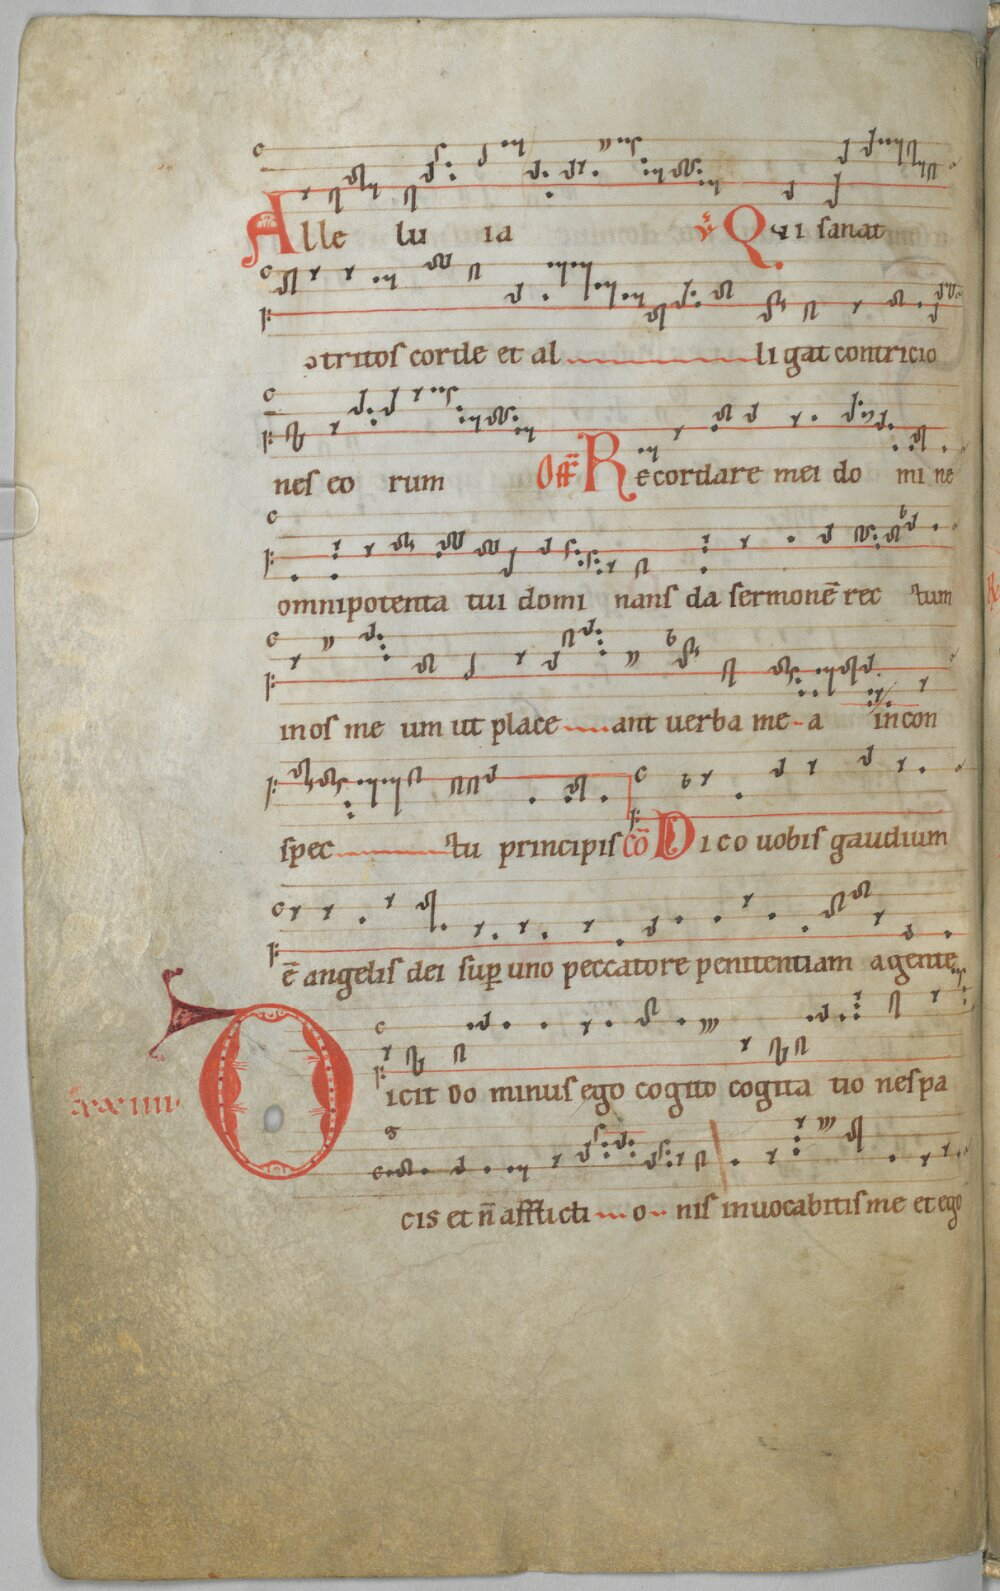 Alle lu ia v̄ Qui sanat
ↄtritos corde et al li gat contricio
nes eo rum Off̄ Recordare mei do mi ne
omnipotenta tui domi nans da sermonē rec tum
in os me um ut place ant uerba me a in con
spec tu principis cō Dico uobis gaudium
ē angelis dei sup uno peccatore penitentiam agente
xxiiii Dicit Do minus ego cogito cogita tio nes pa
cis et n̄ afflicti o nis inuocabitis me et ego